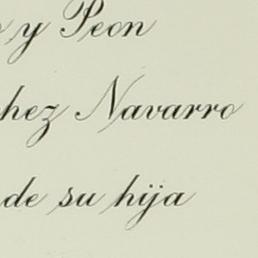 y Peon
hez Navarro
de su hija